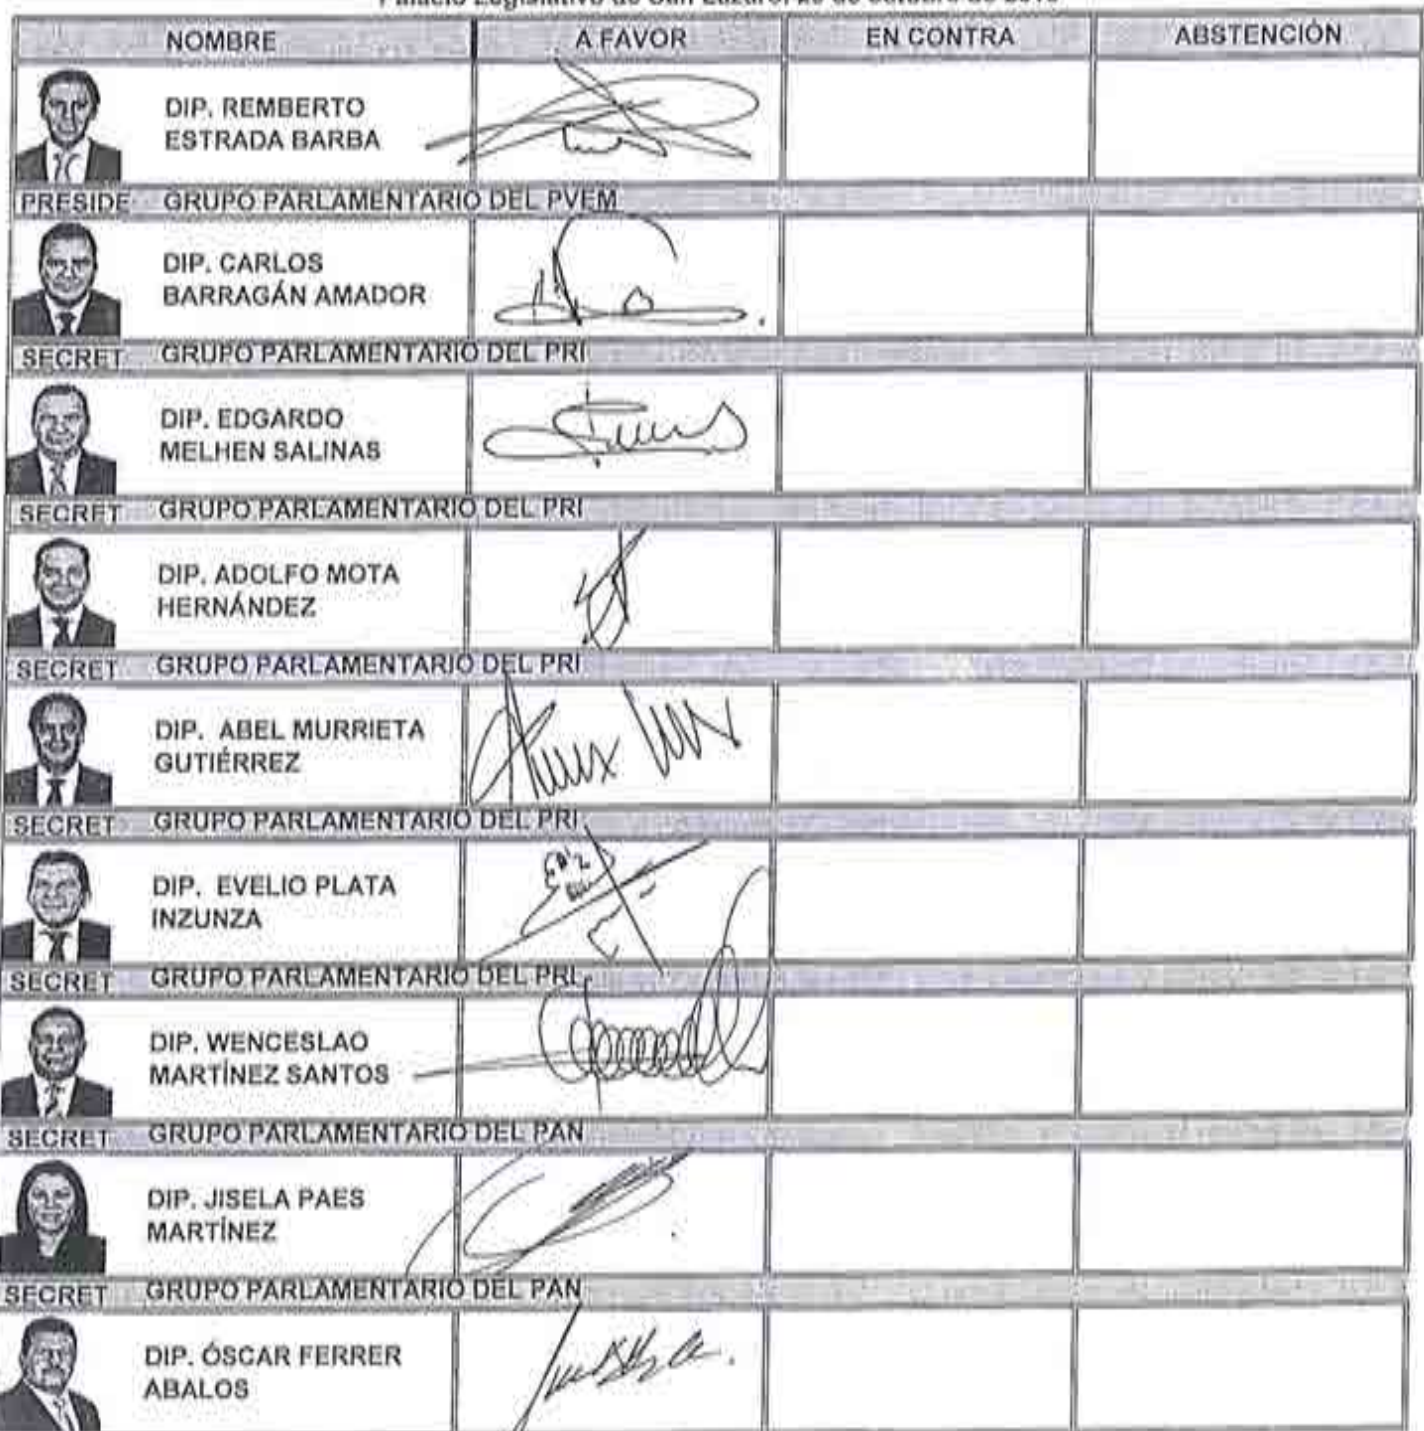 Palacio Legislativo de San Lázaro, de octubre de
NOMBRE A FAVOR EN CONTRA ABSTENCIÓN
DIP. REMBERTO
ESTRADA BARBA
PRESIDE GRUPO PARLAMENTARIO DEL PVEM
DIP. CARLOS
BARRAGÁN AMADOR
SECRET GRUPO PARLAMENTARIO DEL PRI
DIP. EDGARDO
MELHEN SALINAS
SECRET GRUPO PARLAMENTARIO DEL PRI
DIP. ADOLFO MOTA
HERNÁNDEZ
SECRET GRUPO PARLAMENTARIO DEL PRI
DIP. ABEL MURRIETA
GUTIÉRREZ
SECRET GRUPO PARLAMENTARIO DEL PRI
DIP. EVELIO PLATA
INZUNZA
SECRET GRUPO PARLAMENTARIO DEL PRI
DIP. WENCESLAO
MARTÍNEZ SANTOS
SECRET GRUPO PARLAMENTARIO DEL PAN
DIP. JISELA PAES
MARTÍNEZ
SECRET GRUPO PARLAMENTARIO DEL PAN
DIP. ÓSCAR FERRER
ABALOS